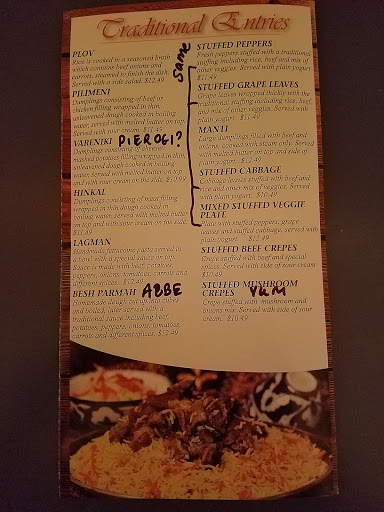 Traditional Entries
PLOV
Rice is cooked in a seasoned broth
which contains beef onions and
carrots, steamed to finish the dish.
Served with a side salad. $12.49
PILIMENI
Dumplings consisting of beef or
chicken filling wrapped in thin,
unleavened dough cooked in boiling
water, served with melted butter on top.
Served with sour cream. $11.49
VARENIKI PIEROGI?
Dumplings consisting of
mashed potatoes filling wrapped in thin,
unleaved dough cooked in boiling
water, served with melted butter on top
and with sour cream on the side. $10.99
HINKAL
Dumplings consisting of meat filling
wrapped in thin dough cooked in
boiling water, served with melted butter
on top and with sour cream on the side.
$11.49
LAGMAN
Handmade fettuccine pasta served in
a bowl with a special sauce on top.
Sauce is made with beef, potatoes,
peppers, onions, tomatoes, carrots and
different spices. $12.49
BESH PARMAH ABBE
Homemade dough cut up into cubes
and boiled, later served with a
traditional sauce including beef,
potatoes, peppers, onions, tomatoes,
carrots and different spices. $12.49
Same
STUFFED PEPPERS
Fresh peppers stuffed with a traditional
stuffing including rice, beef and mix of
other veggies. Served with plain yogurt
$11.49
STUFFED GRAPE LEAVES
Grape leaves wrapped thickly with the
traditional stuffing including rice, beef,
and mix of other veggies. Served with
plain yogurt. $11.49
MANTI
Large dumplings filled with beef and
onions, cooked with steam only. Served
with melted butter on top and side of
plain yogurt. $12.49
STUFFED CABBAGE
Cabbage leaves stuffed with beef and
rice and other mix of veggies. Served
with plain yogurt. $10.49
MIXED STUFFED VEGGIE
PLATE
Plate with stuffed peppers, grape
leaves and stuffed cabbage, served with
plain yogurt. $12.49
STUFFED BEEF CREPES
Crepe stuffed with beef and special
spices. Served with side of sour cream
$12.49
STUFFED MUSHROOM
CREPES YUM
Crepe stuffed with mushroom and
onions mix. Served with side of sour
cream. $10.49